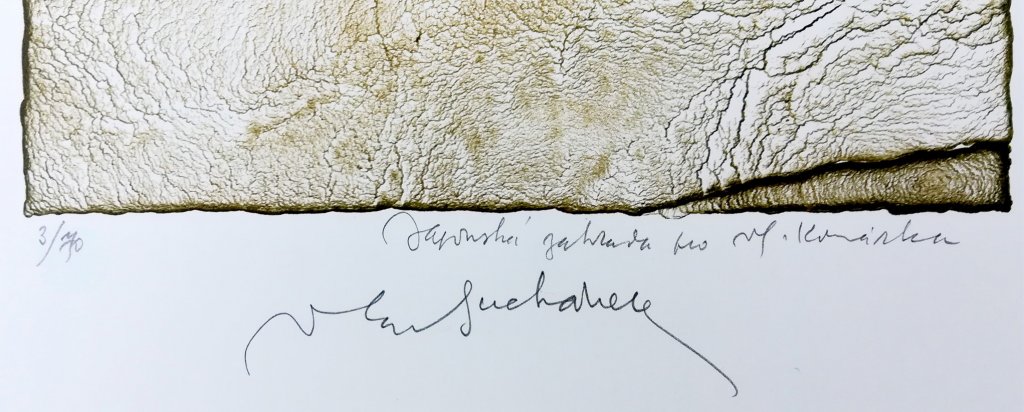 3/70 Japonská zahrada pro Vl. Komárka
Vlad Suchánek